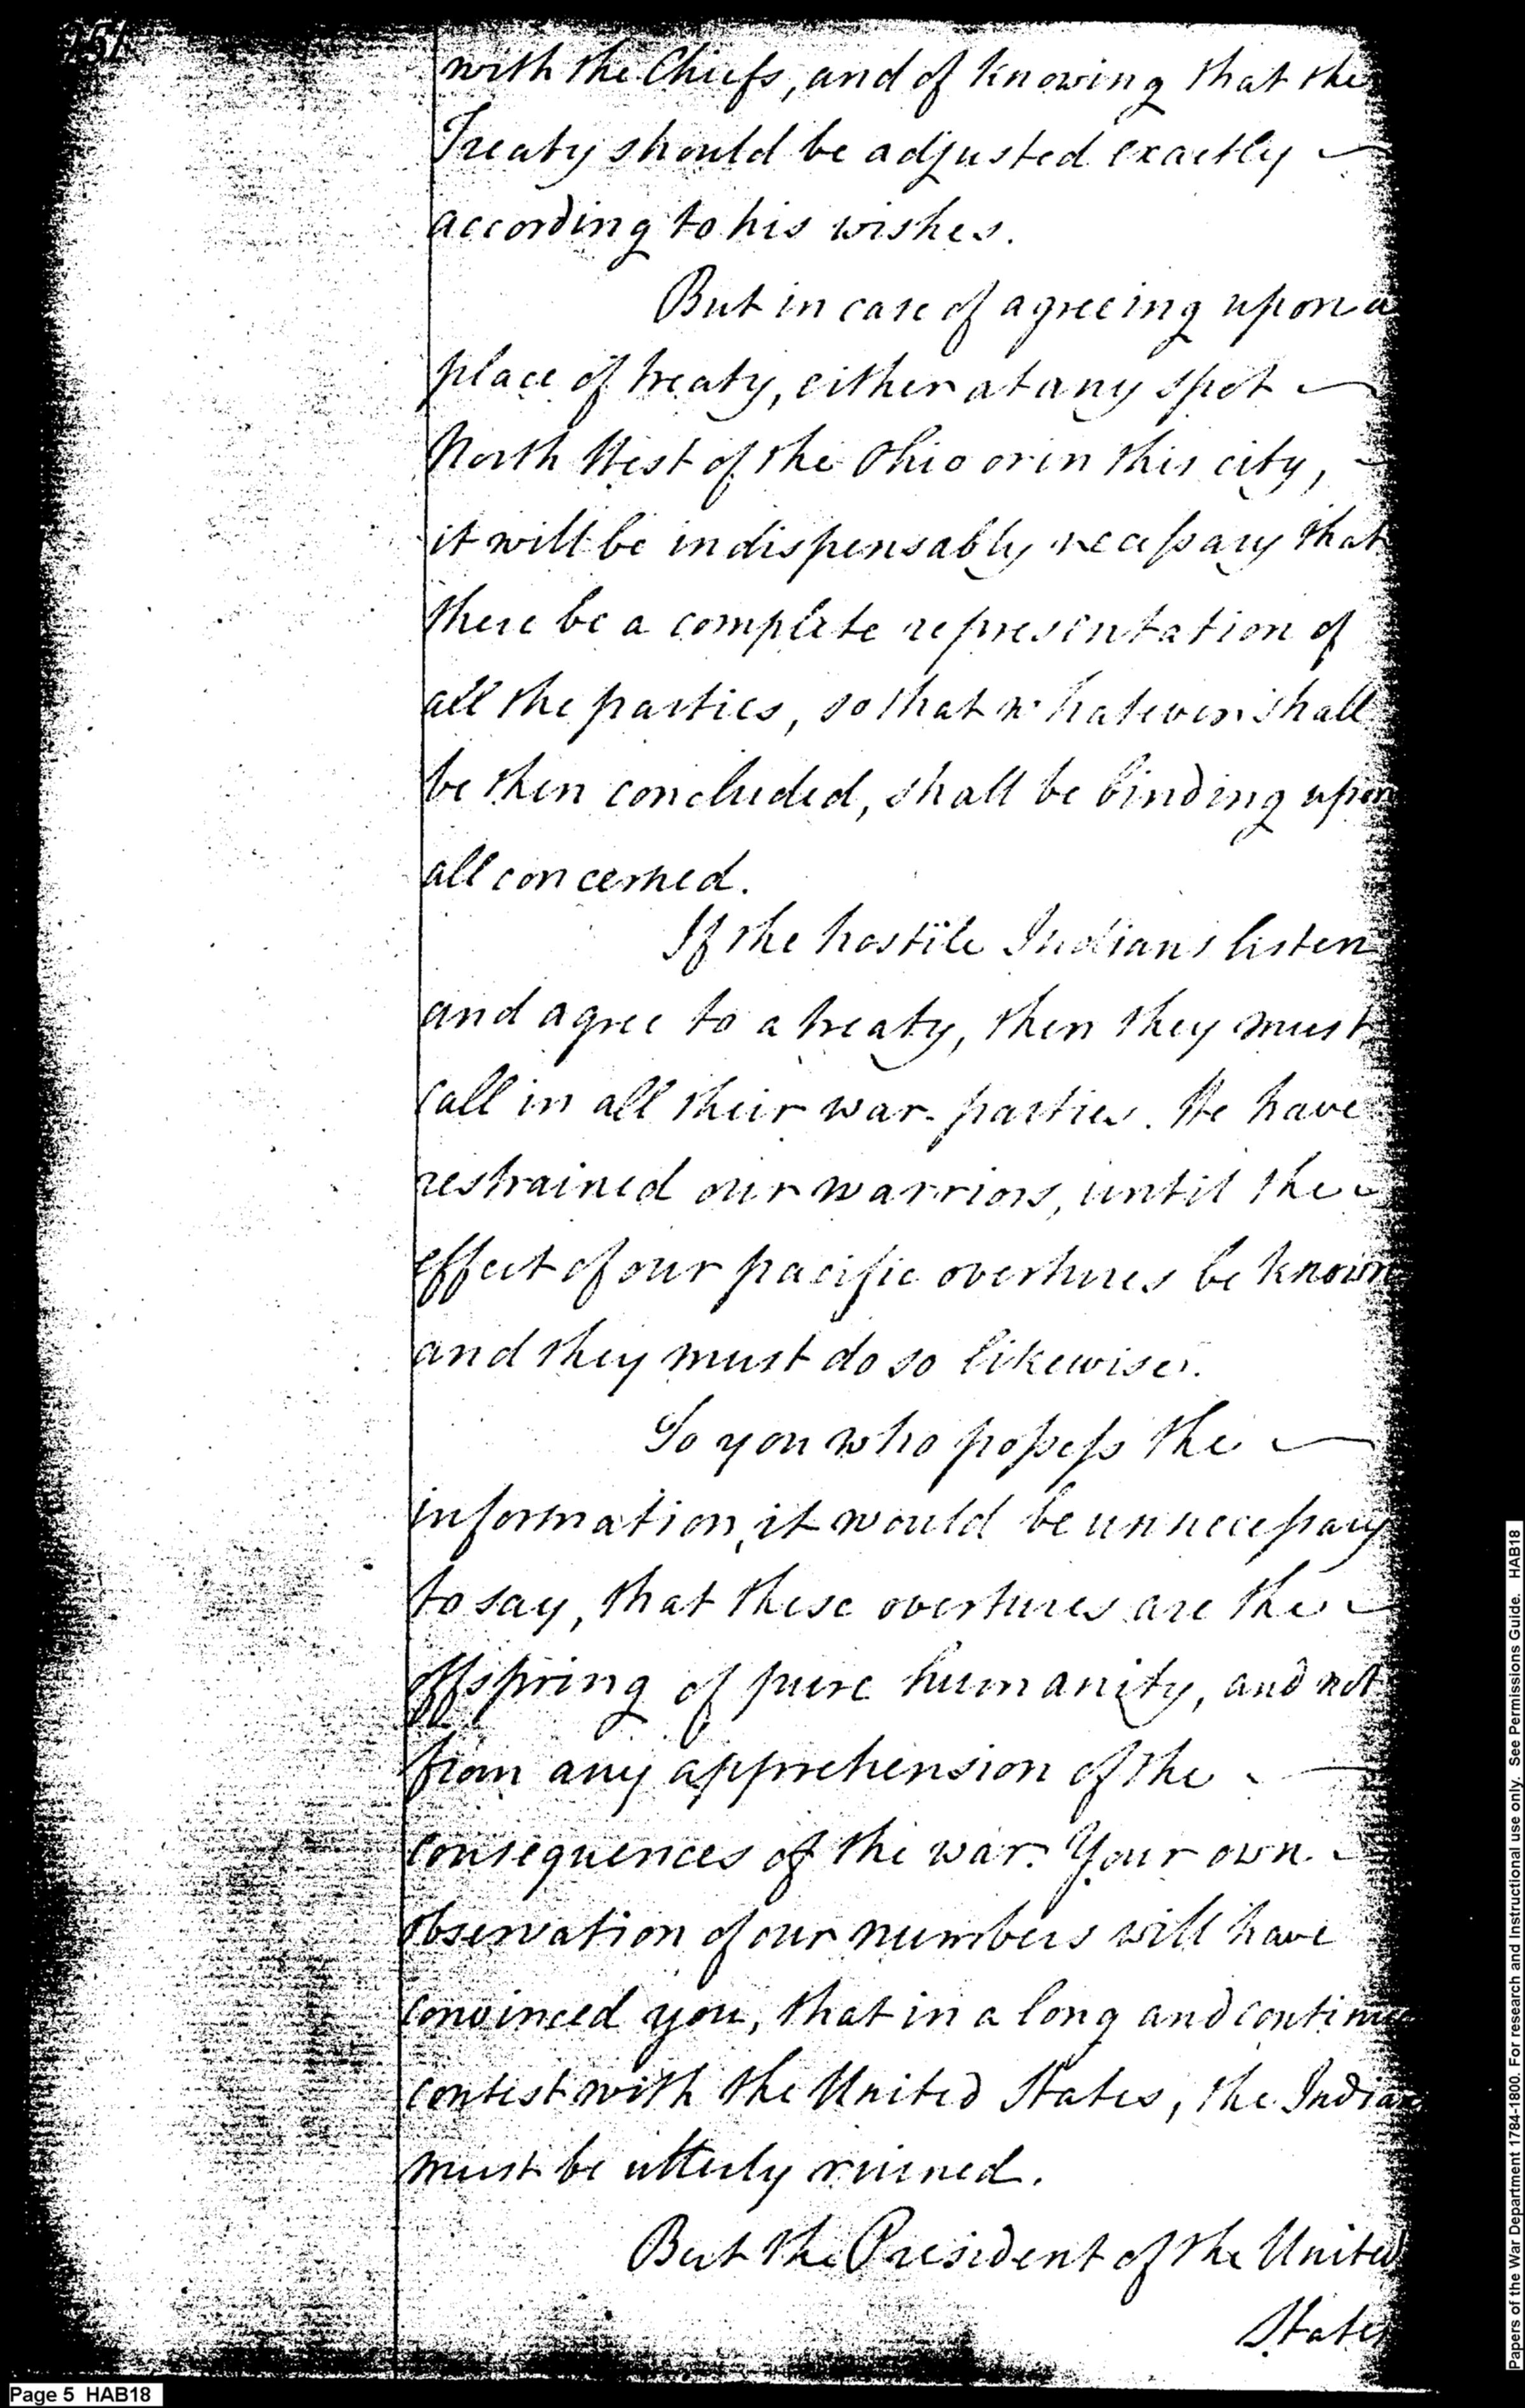 151
with the Chiefs, and of knowing that the
Treaty should be adjusted exactly
according to his wishes.
But in case of agreeing upon a
place of treaty, either at any spot
North West of the Ohio or in this city,
it will be indispensably necessary that
there be a complete representation of
all the parties, so that whatever shall
be then concluded, shall be binding upon
all concerned.
If the hostile Indians listen
and agree to a treaty, then they must
call in all their war-parties. We have
restrained our warriors, until the
effect of our pacific overtures be known
and they must do so likewise.
To you who possess the
information, it would be unnecessary
to say, that these overtures are the
offspring of pure humanity, and not
from any apprehension of the
consequences of the war. Your own
observation of our numbers will have
convinced you, that in a long and
contest with the United States, the Indians
must be utterly ruined.
But the President of the United
States
Page 5 HAB18
Papers of the War Department 1784-1800. For research and Instructional use only. See Permissions Guide. HAB18